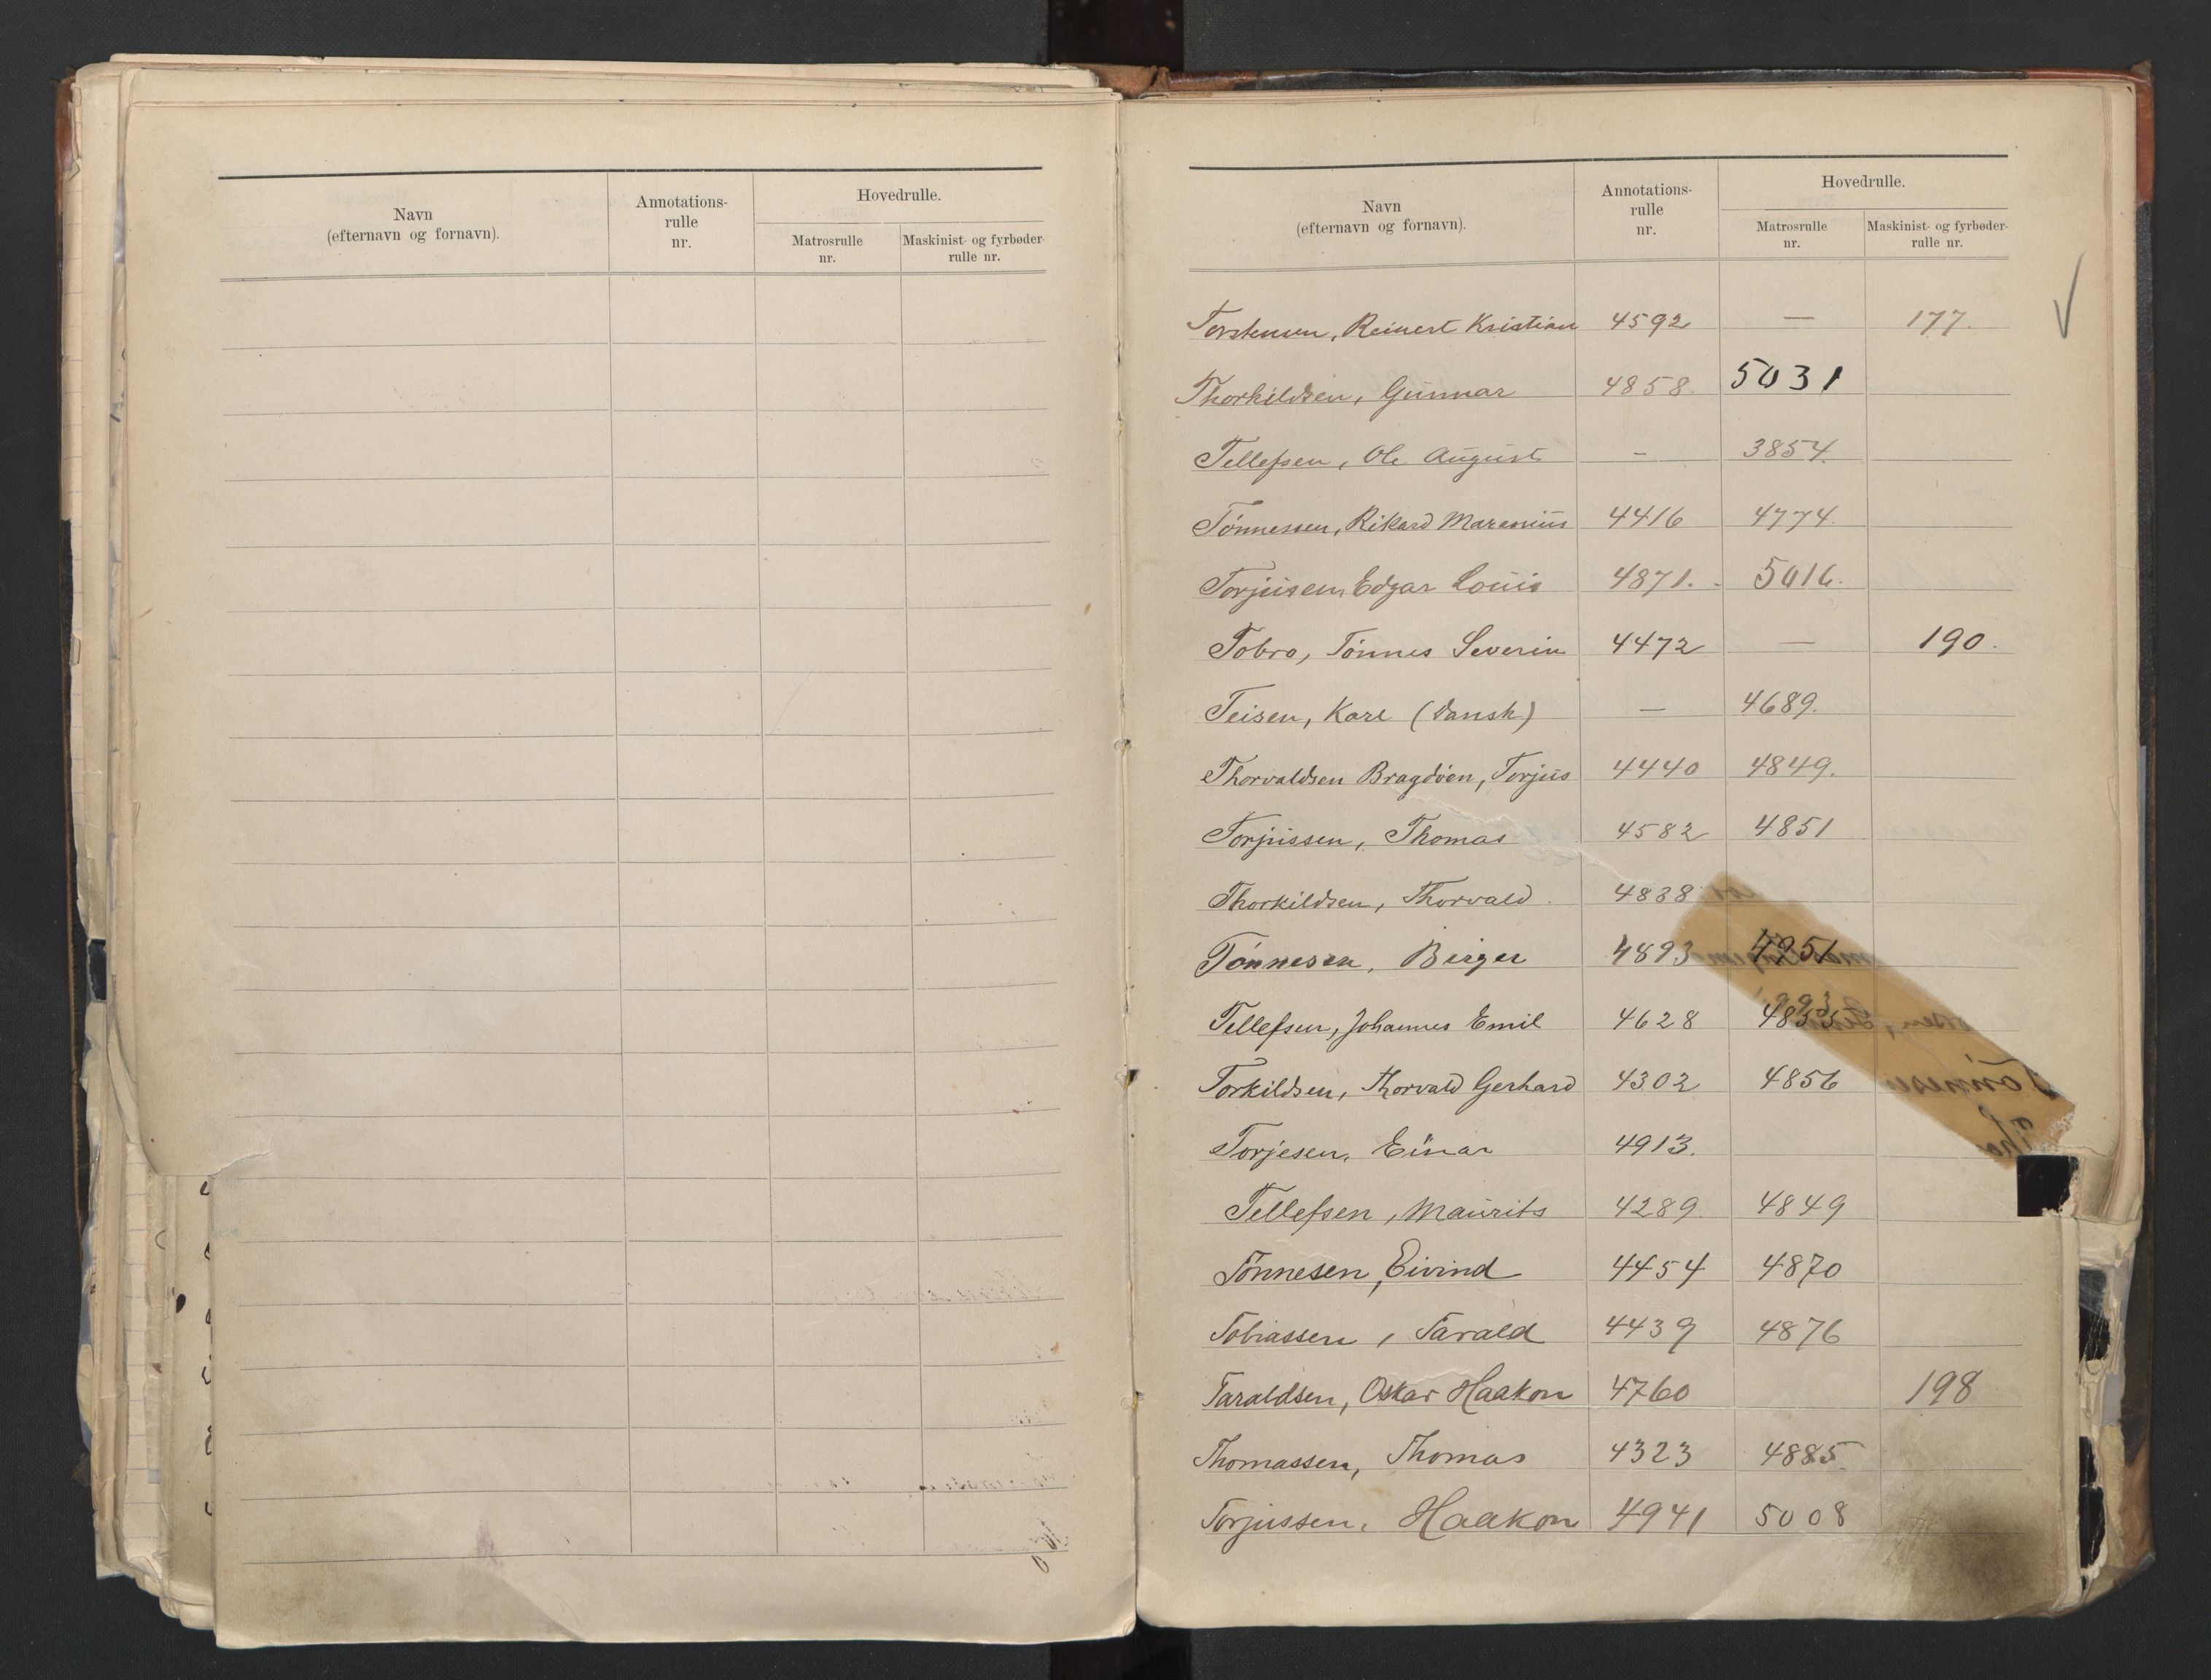 Navn
(efternavn og fornavn).
Annotations-
rulle
nr.
Hovedrulle.
Matrosrulle
nr.
Maskinist- og fyrbøder-
rulle nr.
Navn
(efternavn og fornavn).
Annotations-
rulle
nr.
Hovedrulle.
Matrosrulle
nr.
Maskinist- og fyrbøder-
rulle nr.
Torstensen, Reinert Kristian 4592 — 177.
Thorkildsen, Gunnar 4858. 5031
Tellefsen, Ole August — 3854.
Tønnessen, Rikard Marenius 4416 4774.
Torjusen, Edgar Louis 4871. 5016.
Tobro, Tønnes Severin 4472 — 190.
Teisen, Karl (Dansk) — 4689.
Thorvaldsen Bragdøen, Torjus 4440 4849.
Torjussen, Thomas 4582 4851
Thorkildsen, Thorvald 4838
Tønnesen, Birger 4893 4951
Tellefsen, Johannes Emil 4628
Torkildsen, Thorvald Gerhard 4302 4856
Torjesen, Einar 4913.
Tellefsen, Maurits 4289. 4849
Tønnesen, Eivind 4454 4870
Tobiassen, Tarald 4439 4876
Taraldsen, Oskar Haakon 4760 198
Thomassen, Thomas 4323 4885.
Torjussen, Haakon 4941 5008